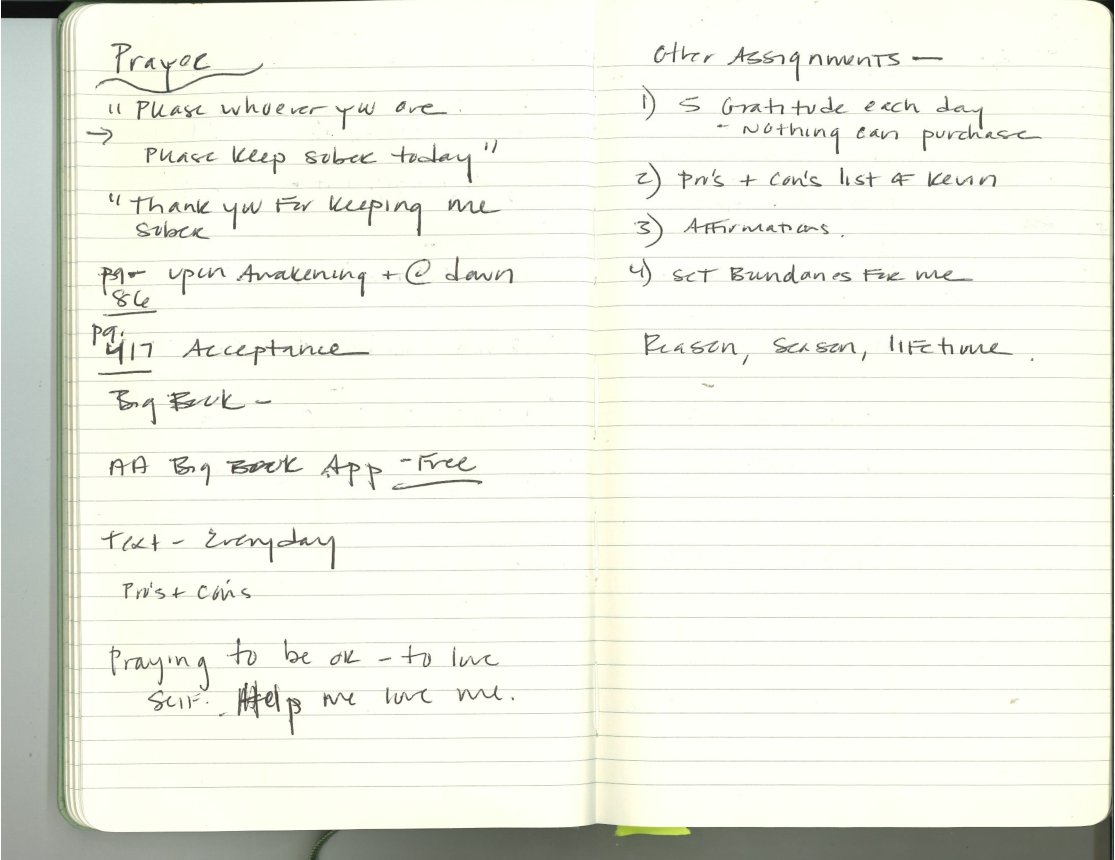 Prayer
"Please whoever you are
→
Please keep sober today"
"Thank you For keeping me
sober
pg - upon Awakening + @ dawn
86
pg.
417 Acceptance
Big Book -
AA Big Book App - Free
Text - Everyday
Pro's + Con's
Praying to be ok - to love
self. Help me love me.
Other Assignments —
1) 5 Gratitude each day
- Nothing can purchase
2) Pro's + Con's list of Kevin
3) Affirmations.
4) Set Bundanes For me
Reason, Season, lifetime.